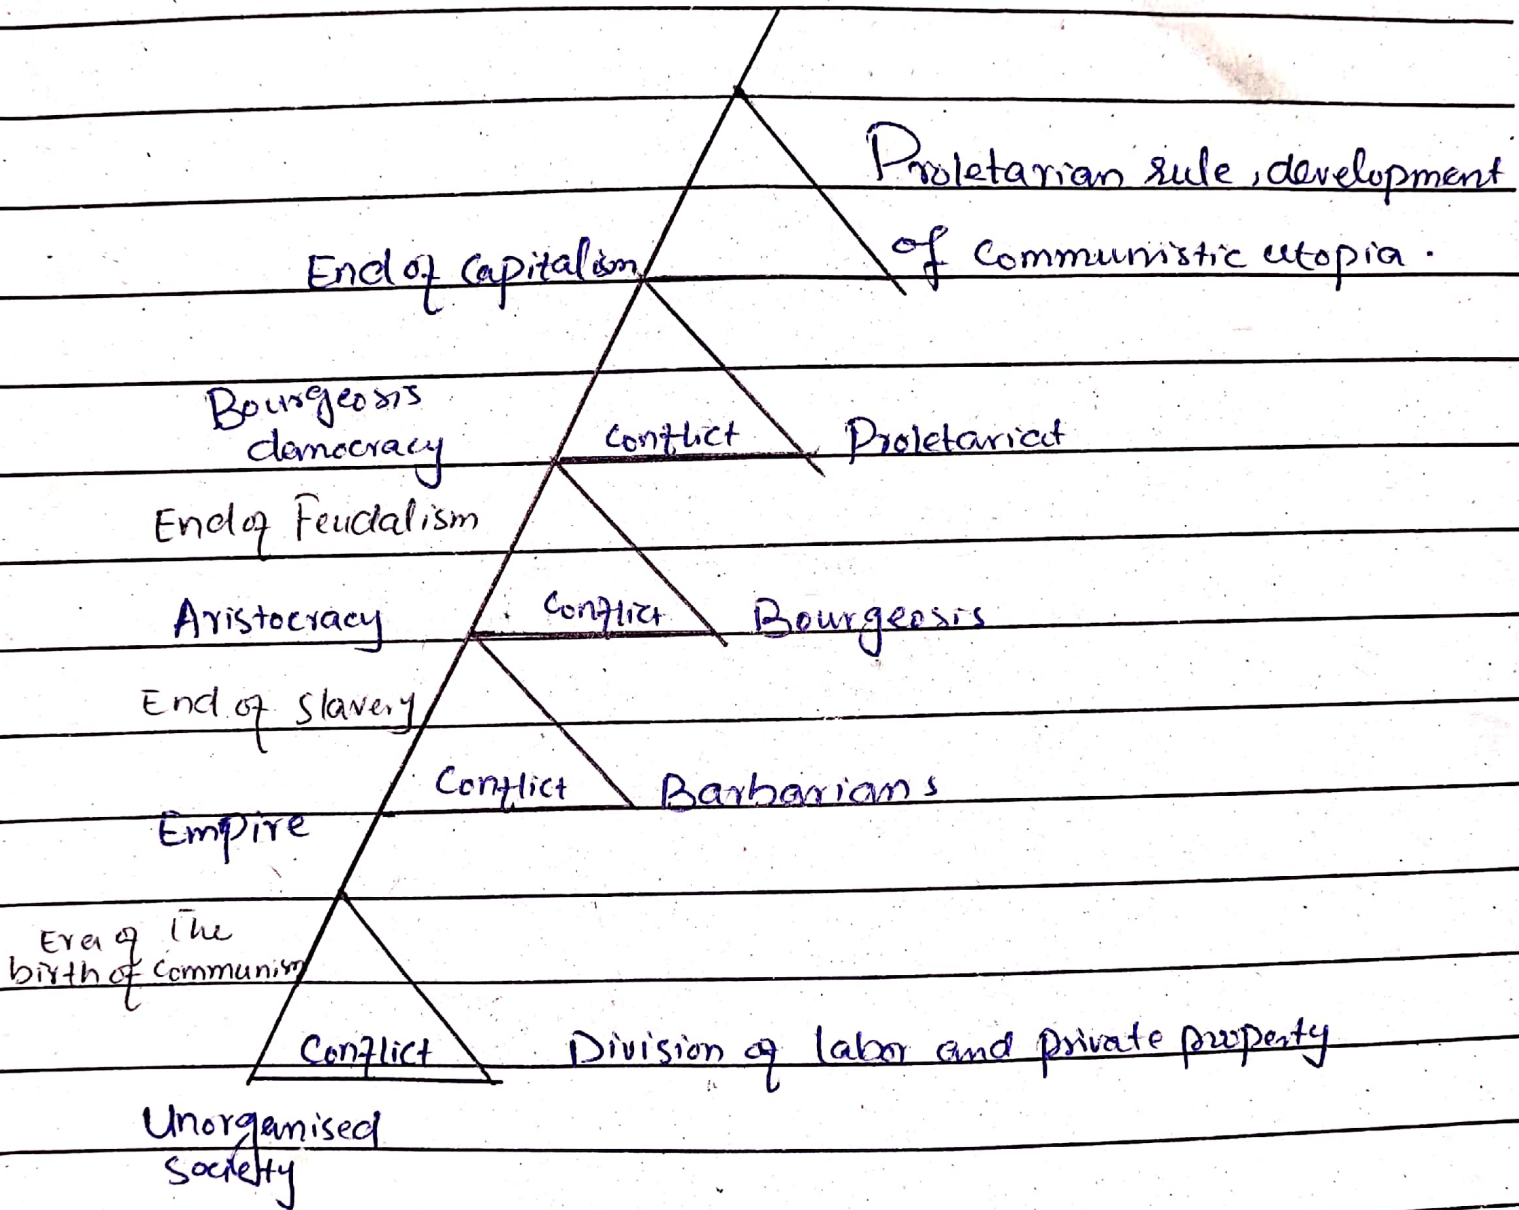 Proletarian rule, development
of Communistic utopia.
End of Capitalism
Bourgeosis
democracy
Conflict
Proletariat
End of Feudalism
Aristocracy
Conflict
Bourgeosis
End of slavery
Conflict
Barbarians
Empire
Era of The
birth of Communism
Conflict
Division of labor and private property
Unorganised
society